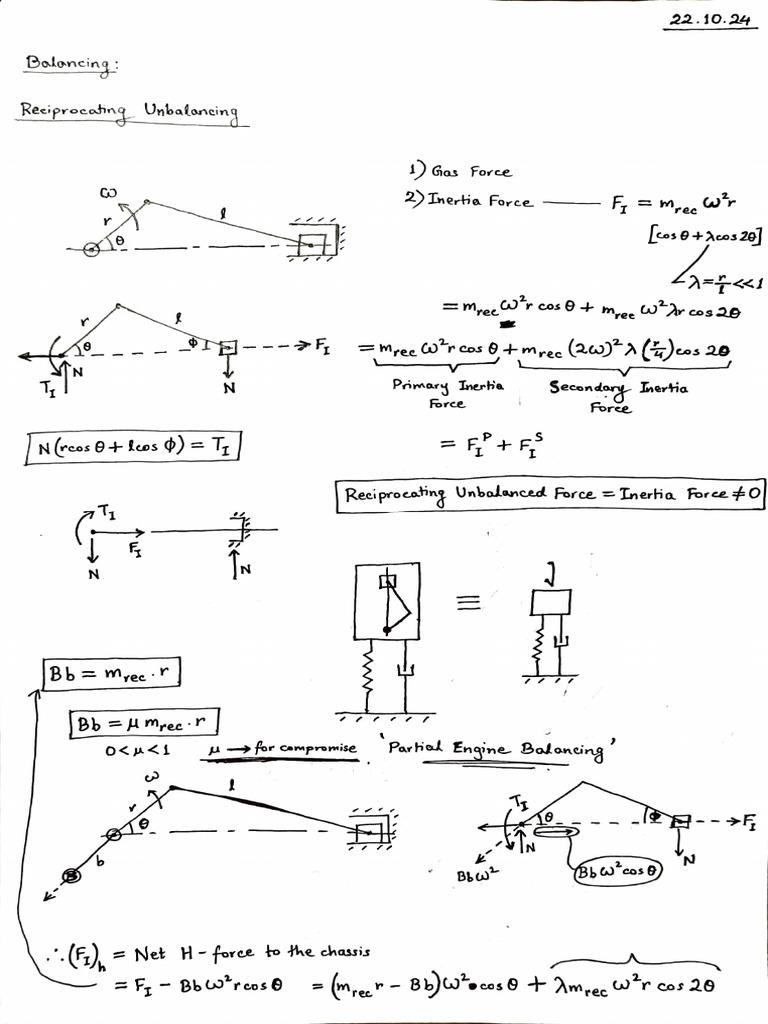 22.10.24
Balancing:
Reciprocating Unbalancing
1) Gas Force
2) Inertia Force —— F_I = m_rec ω²r
[cosθ + λcos2θ]
λ = r/l <<1
ω
r
θ
l
= m_rec ω²r cosθ + m_rec ω²λr cos2θ
r
l
θ
φ
F_I
T_I
N
N
= m_rec ω²r cosθ + m_rec (2ω)² λ(r/4) cos2θ
Primary Inertia Force
Secondary Inertia Force
N(rcosθ + lcosφ) = T_I
= F_I^P + F_I^S
Reciprocating Unbalanced Force = Inertia Force ≠ 0
T_I
F_I
N
N
≡
Bb = m_rec · r
Bb = μ m_rec · r
0 < μ < 1 μ → for compromise. 'Partial Engine Balancing'
ω
r
θ
l
b
B
T_I
θ
φ
F_I
N
N
Bbω²
Bbω²cosθ
∴ (F_I)_h = Net H-force to the chassis
= F_I − Bbω²rcosθ = (m_rec r − Bb)ω²·cosθ + λm_rec ω²r cos2θ